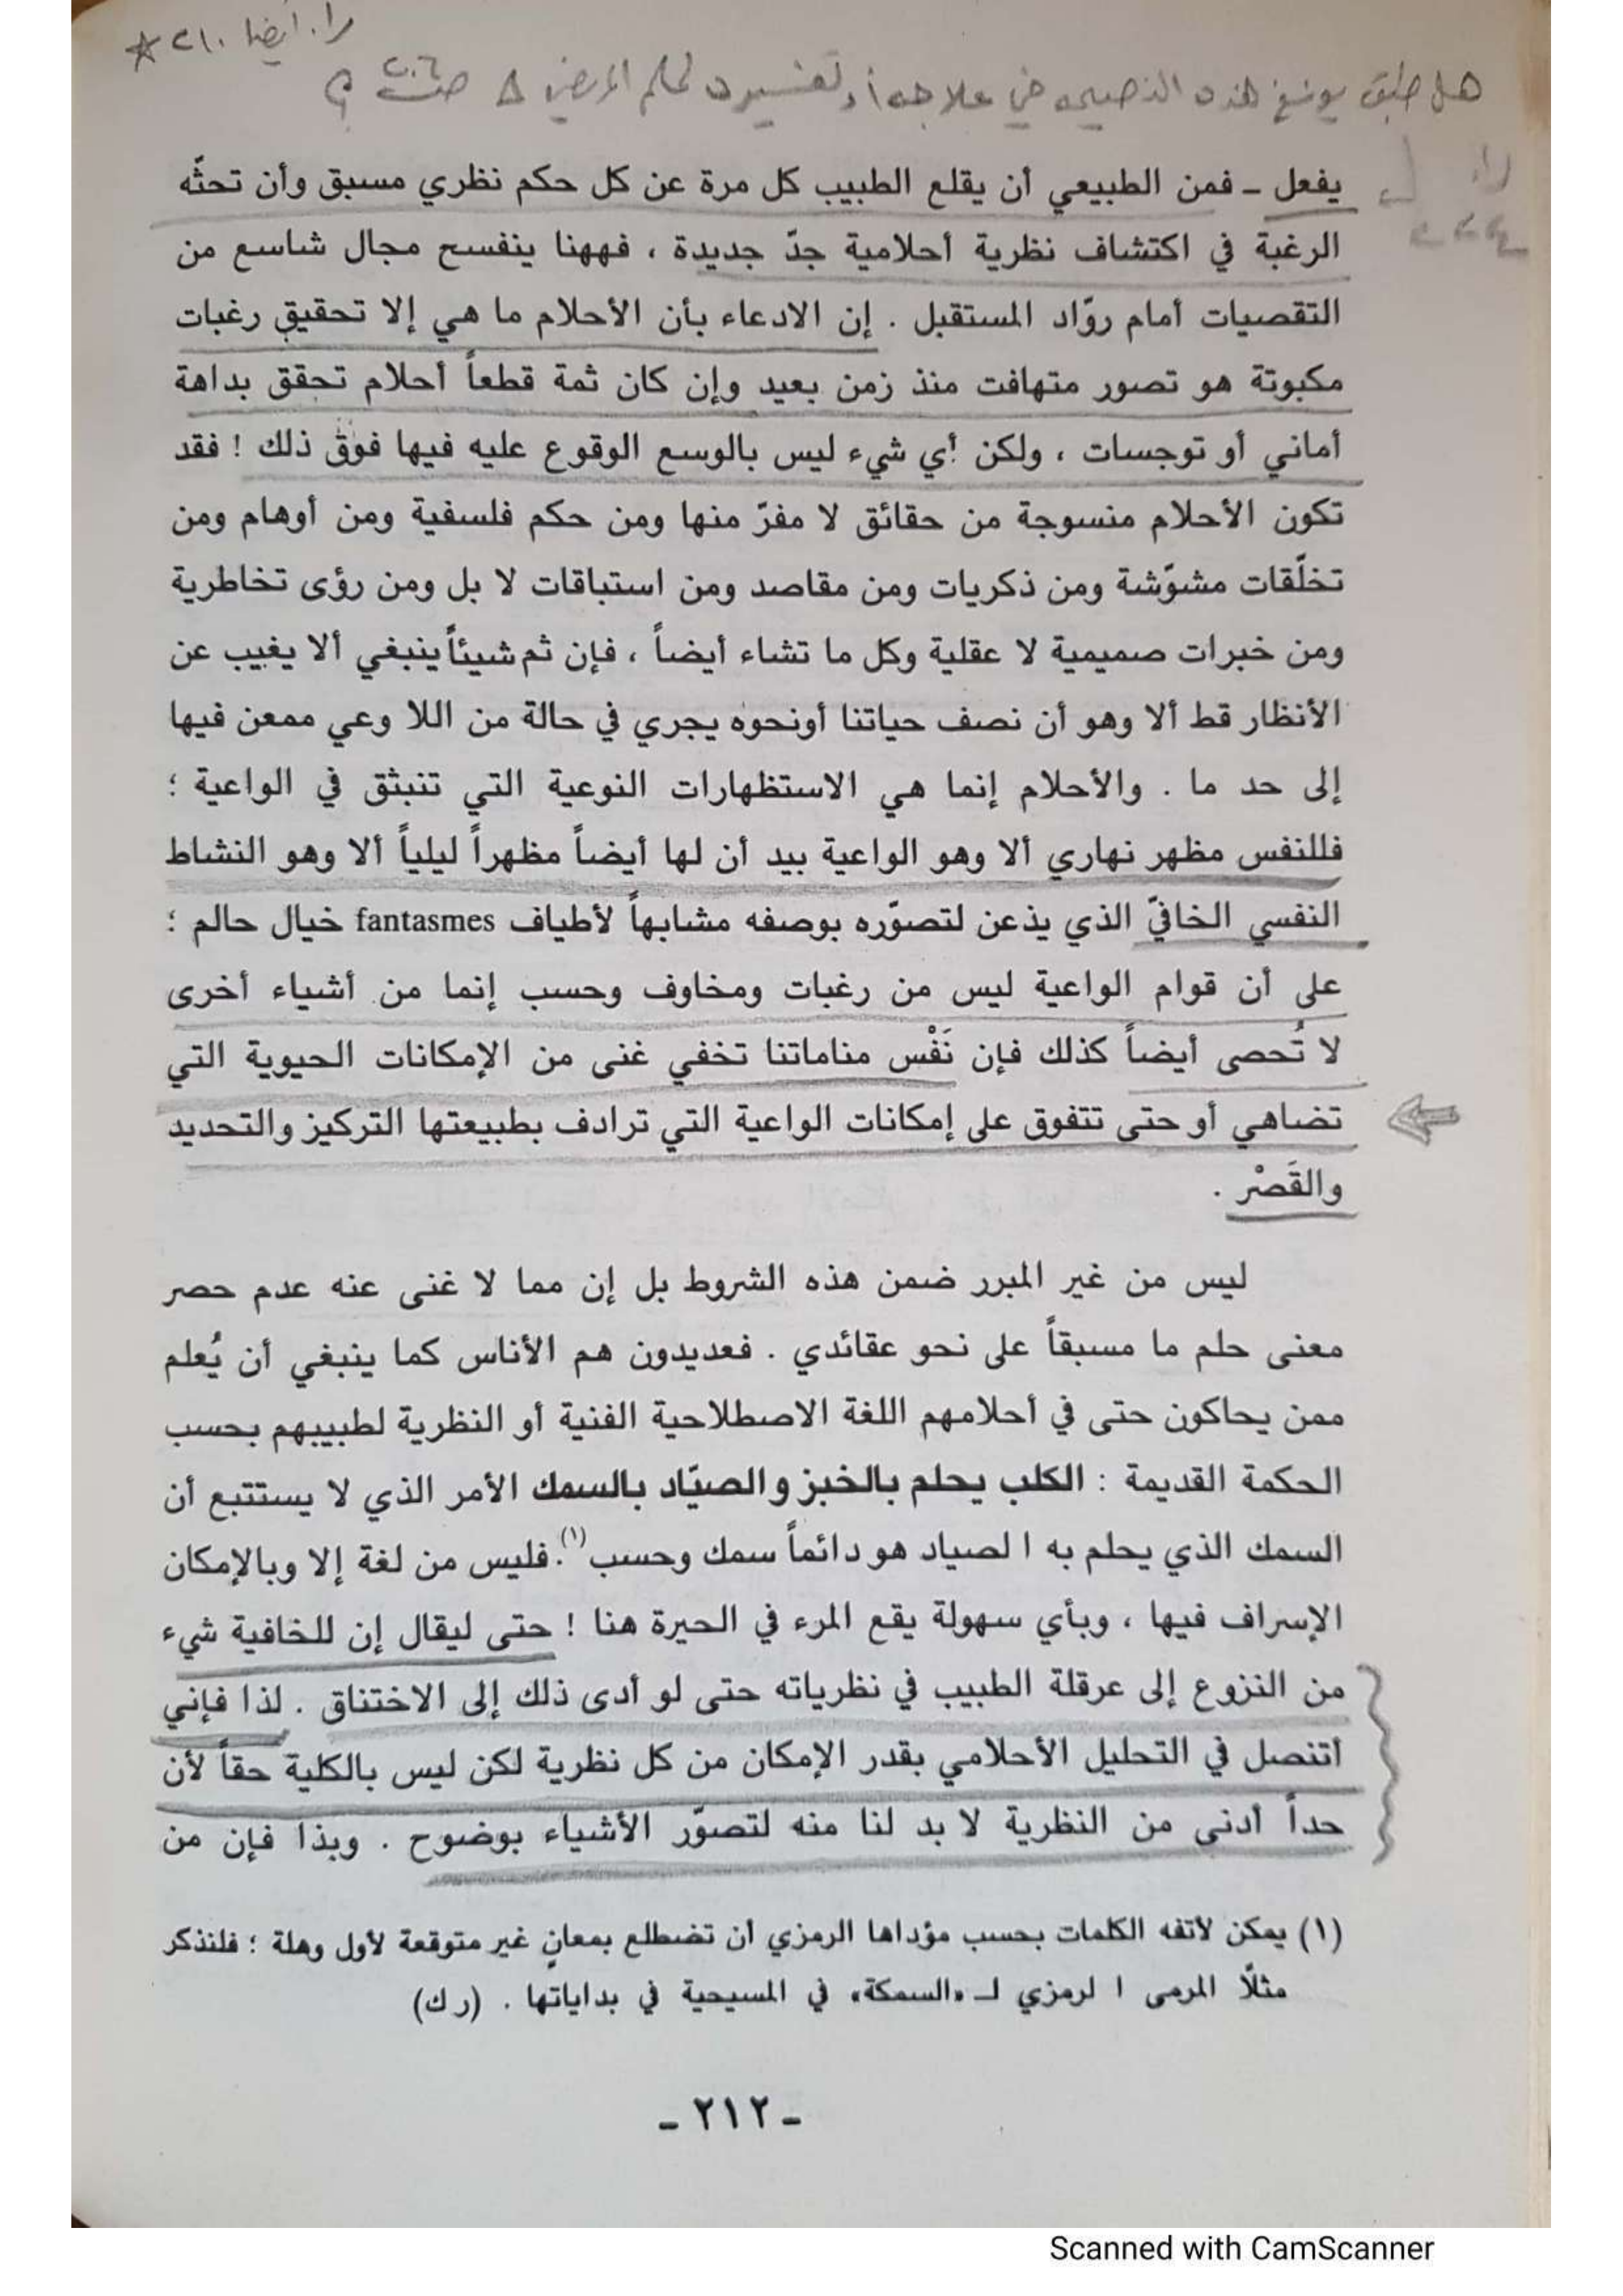 را. أيضا ٢١٠ *
هل طبق يونغ هذه النصيحة في علاجه أو تفسيره لحلم المريض صـ ٢٠٦ ؟
را.
يفعل ـ فمن الطبيعي أن يقلع الطبيب كل مرة عن كل حكم نظري مسبق وأن تحثّه
الرغبة في اكتشاف نظرية أحلامية جدّ جديدة ، فههنا ينفسح مجال شاسع من
التقصيات أمام روّاد المستقبل . إن الادعاء بأن الأحلام ما هي إلا تحقيق رغبات
مكبوتة هو تصور متهافت منذ زمن بعيد وإن كان ثمة قطعاً أحلام تحقق بداهة
أماني أو توجسات ، ولكن أي شيء ليس بالوسع الوقوع عليه فيها فوق ذلك ! فقد
تكون الأحلام منسوجة من حقائق لا مفرّ منها ومن حكم فلسفية ومن أوهام ومن
تخلّقات مشوّشة ومن ذكريات ومن مقاصد ومن استباقات لا بل ومن رؤى تخاطرية
ومن خبرات صميمية لا عقلية وكل ما تشاء أيضاً ، فإن ثم شيئاً ينبغي ألا يغيب عن
الأنظار قط ألا وهو أن نصف حياتنا أونحوه يجري في حالة من اللا وعي ممعن فيها
إلى حد ما . والأحلام إنما هي الاستظهارات النوعية التي تنبثق في الواعية ؛
فللنفس مظهر نهاري ألا وهو الواعية بيد أن لها أيضاً مظهراً ليلياً ألا وهو النشاط
النفسي الخافيّ الذي يذعن لتصوّره بوصفه مشابهاً لأطياف fantasmes خيال حالم ؛
على أن قوام الواعية ليس من رغبات ومخاوف وحسب إنما من أشياء أخرى
لا تُحصى أيضاً كذلك فإن نَفْس مناماتنا تخفي غنى من الإمكانات الحيوية التي
تضاهي أو حتى تتفوق على إمكانات الواعية التي ترادف بطبيعتها التركيز والتحديد
والقَصْر .
ليس من غير المبرر ضمن هذه الشروط بل إن مما لا غنى عنه عدم حصر
معنى حلم ما مسبقاً على نحو عقائدي . فعديدون هم الأناس كما ينبغي أن يُعلم
ممن يحاكون حتى في أحلامهم اللغة الاصطلاحية الفنية أو النظرية لطبيبهم بحسب
الحكمة القديمة : الكلب يحلم بالخبز والصيّاد بالسمك الأمر الذي لا يستتبع أن
السمك الذي يحلم به ا لصياد هو دائماً سمك وحسب(١). فليس من لغة إلا وبالإمكان
الإسراف فيها ، وبأي سهولة يقع المرء في الحيرة هنا ! حتى ليقال إن للخافية شيء
من النزوع إلى عرقلة الطبيب في نظرياته حتى لو أدى ذلك إلى الاختناق . لذا فإنني
أتنصل في التحليل الأحلامي بقدر الإمكان من كل نظرية لكن ليس بالكلية حقاً لأن
حداً أدنى من النظرية لا بد لنا منه لتصوّر الأشياء بوضوح . وبذا فإن من
(١) يمكن لأتفه الكلمات بحسب مؤداها الرمزي أن تضطلع بمعانٍ غير متوقعة لأول وهلة ؛ فلنذكر
مثلًا المرمى ا لرمزي لـ «السمكة» في المسيحية في بداياتها . (ر ك)
ـ ٢١٢ ـ
Scanned with CamScanner